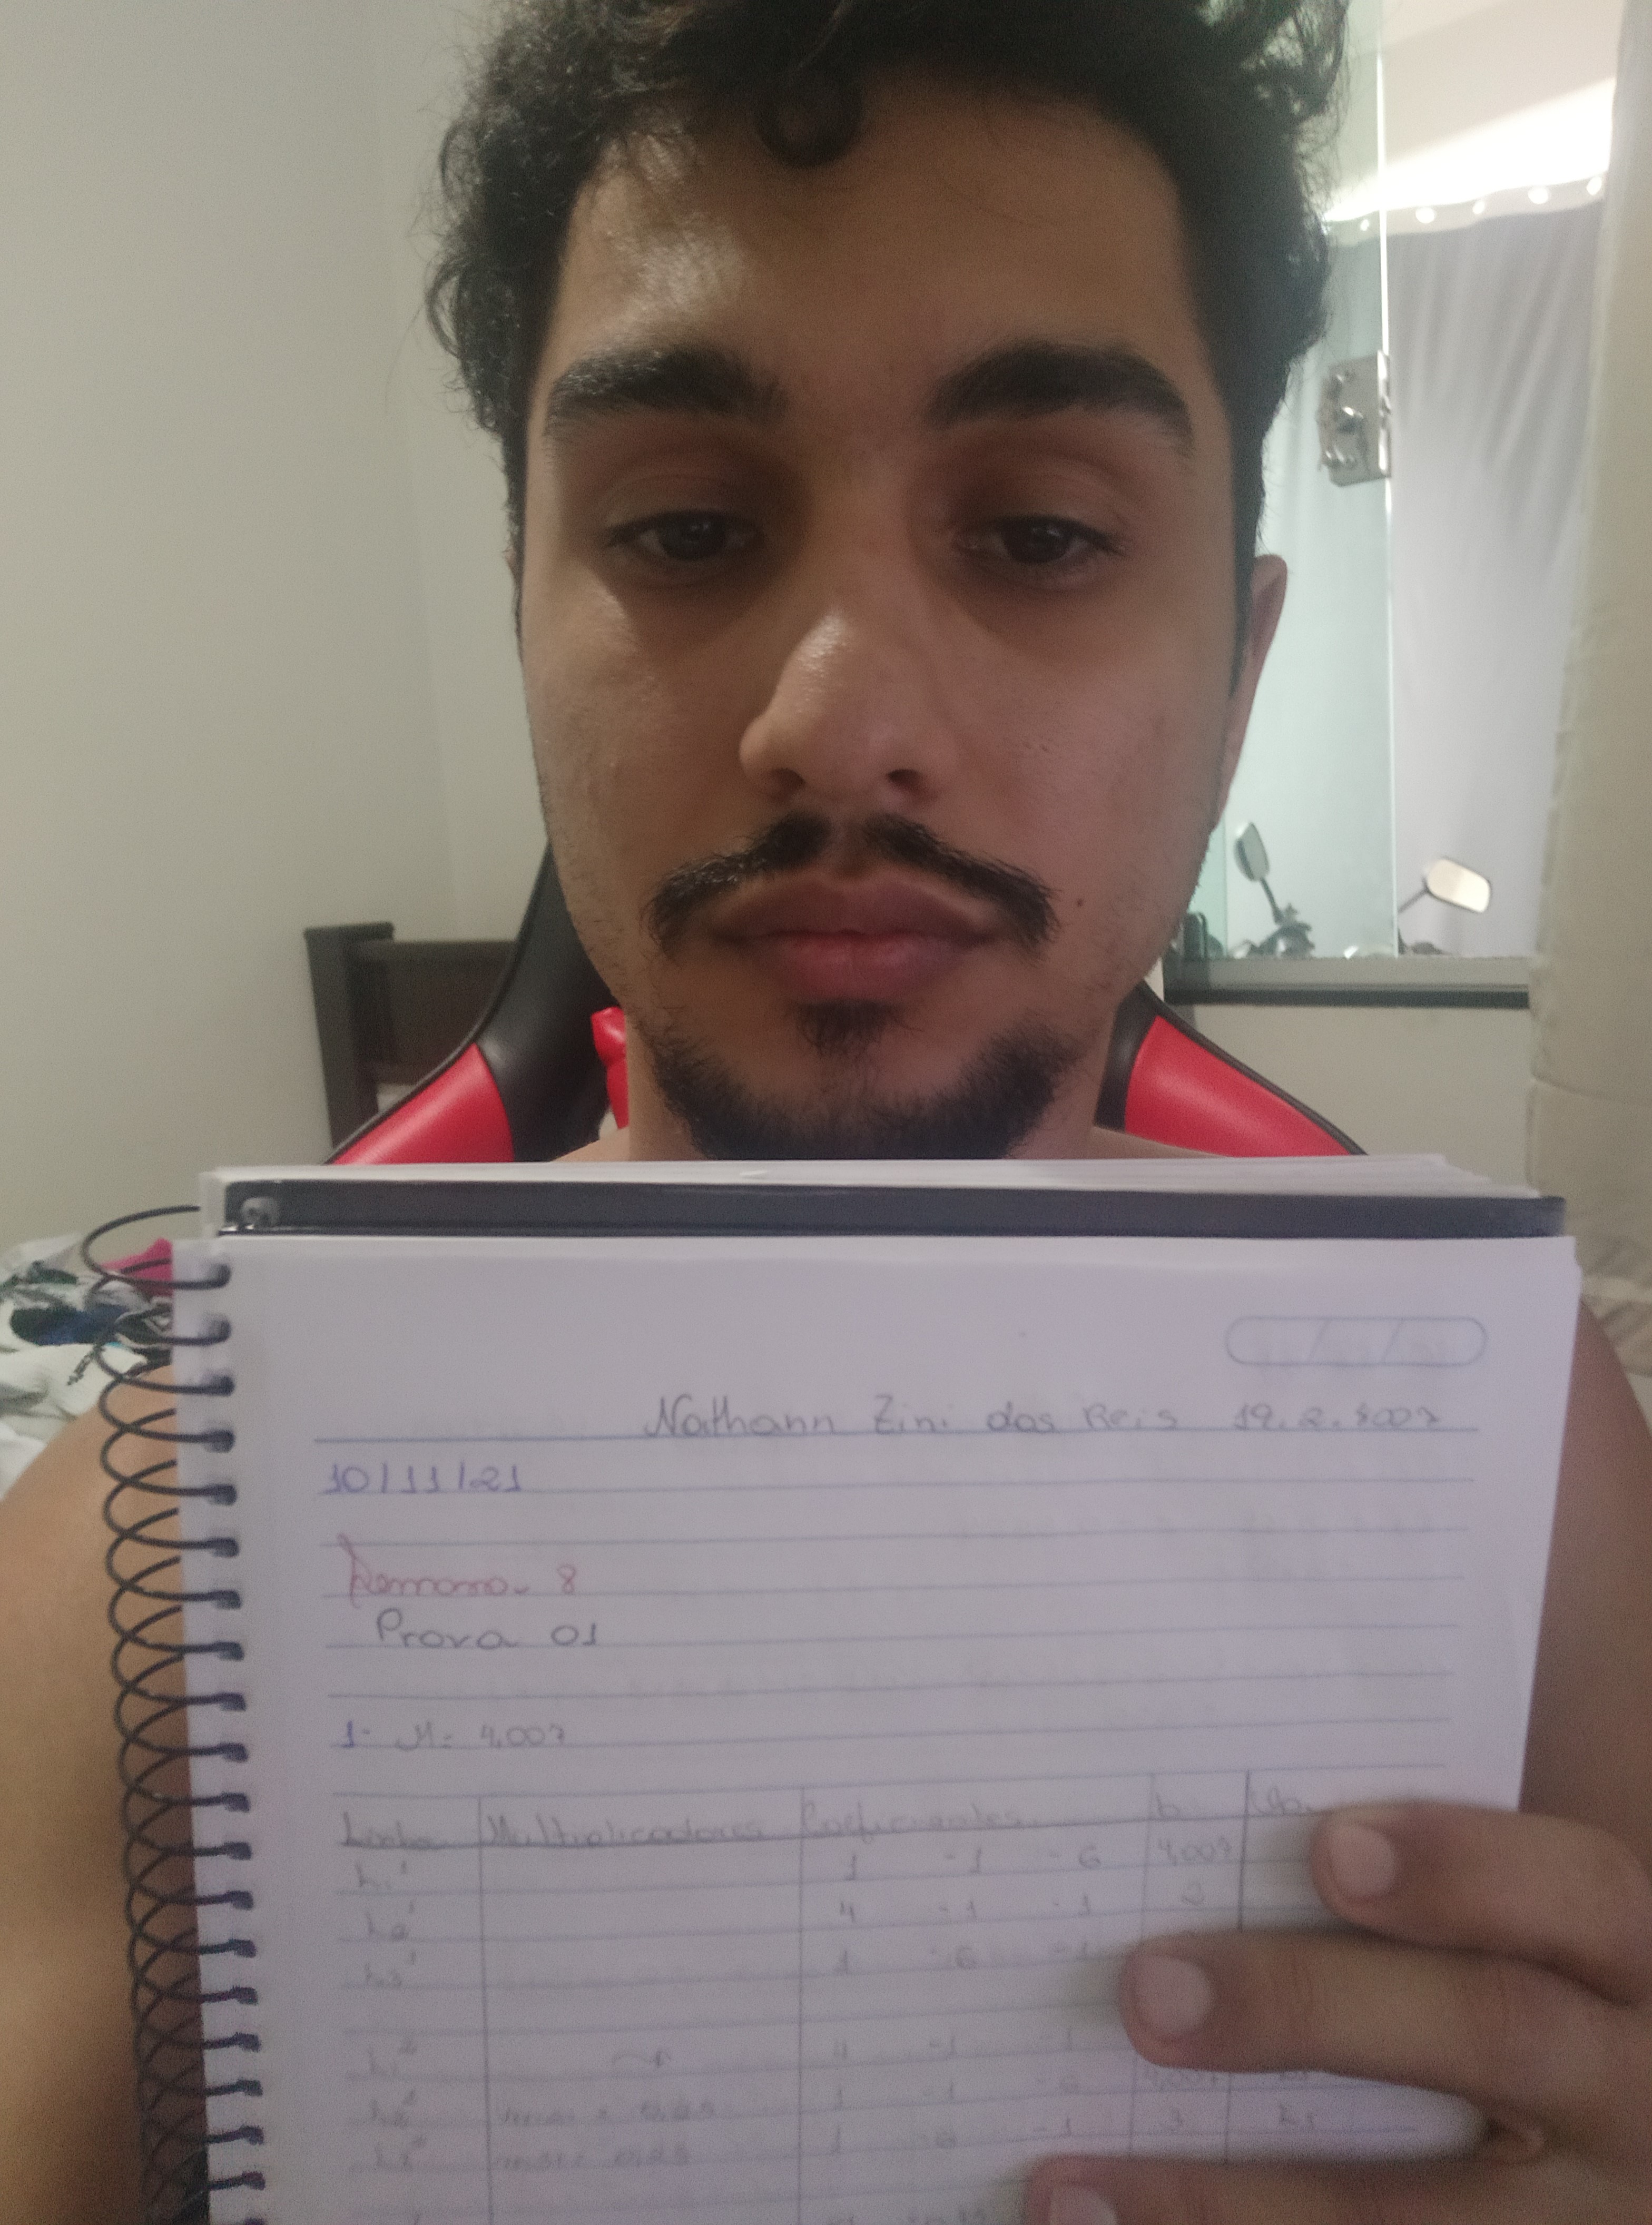 Nathann Zini dos Reis 19.2.4007
10/11/21
Semana 8
Prova 01
1- M= 4,007
Linha Multiplicadores Coeficientes b
L1¹ 1 -1 -6 4,007
L2¹ 4 -1 -1 2
L3¹ 1 -6 -1
L1² 4 -1 -1
L2² 1 -6 4,007
L3² 0,25 1 -6 -1 3 L3